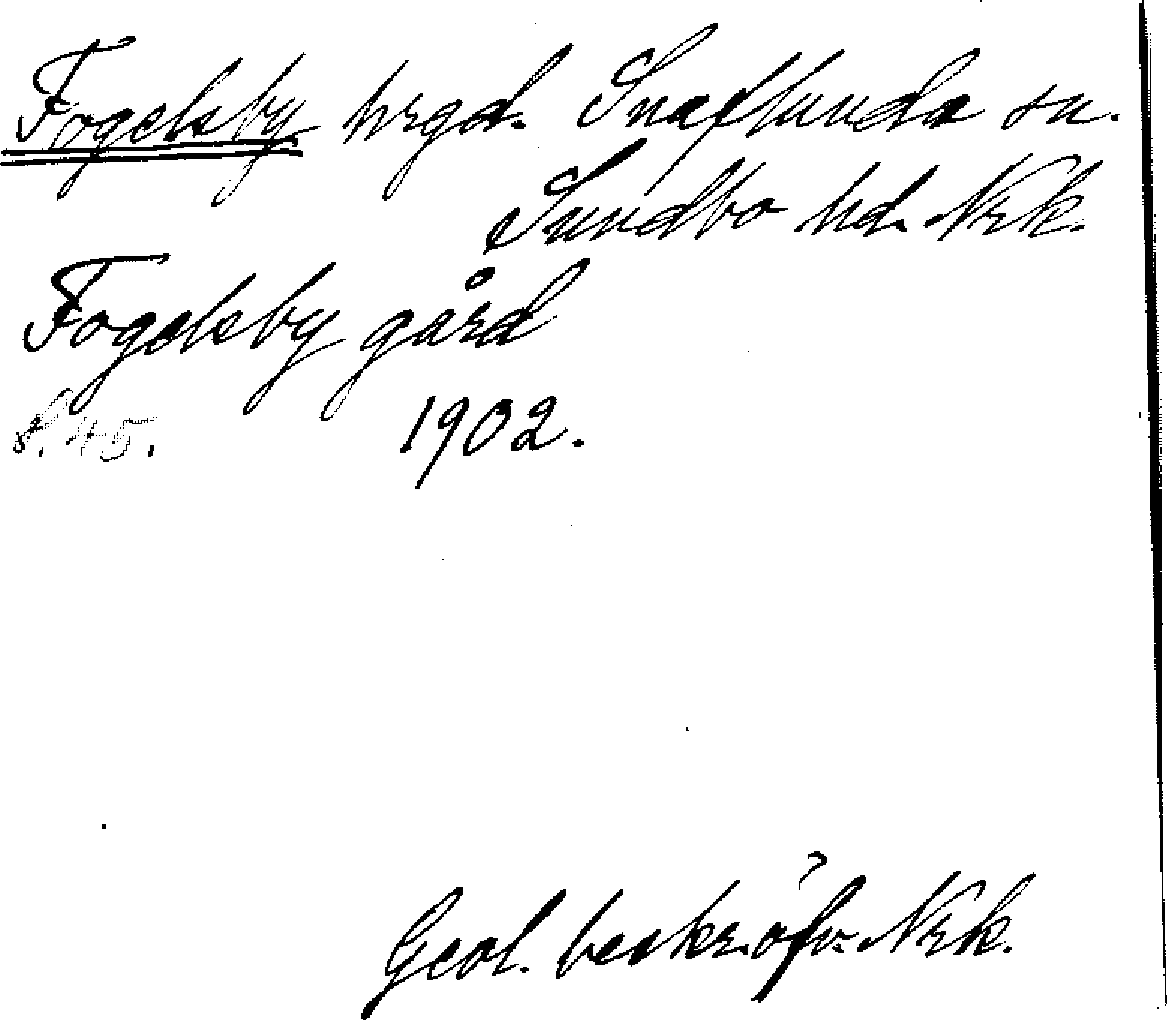 Fogelsby hrgd. Snaflunda sn.
Sundbo hd. Nrk.
Fogelsby gård
S. 45. 1902.
Geol. beskr. öfv. Nrk.